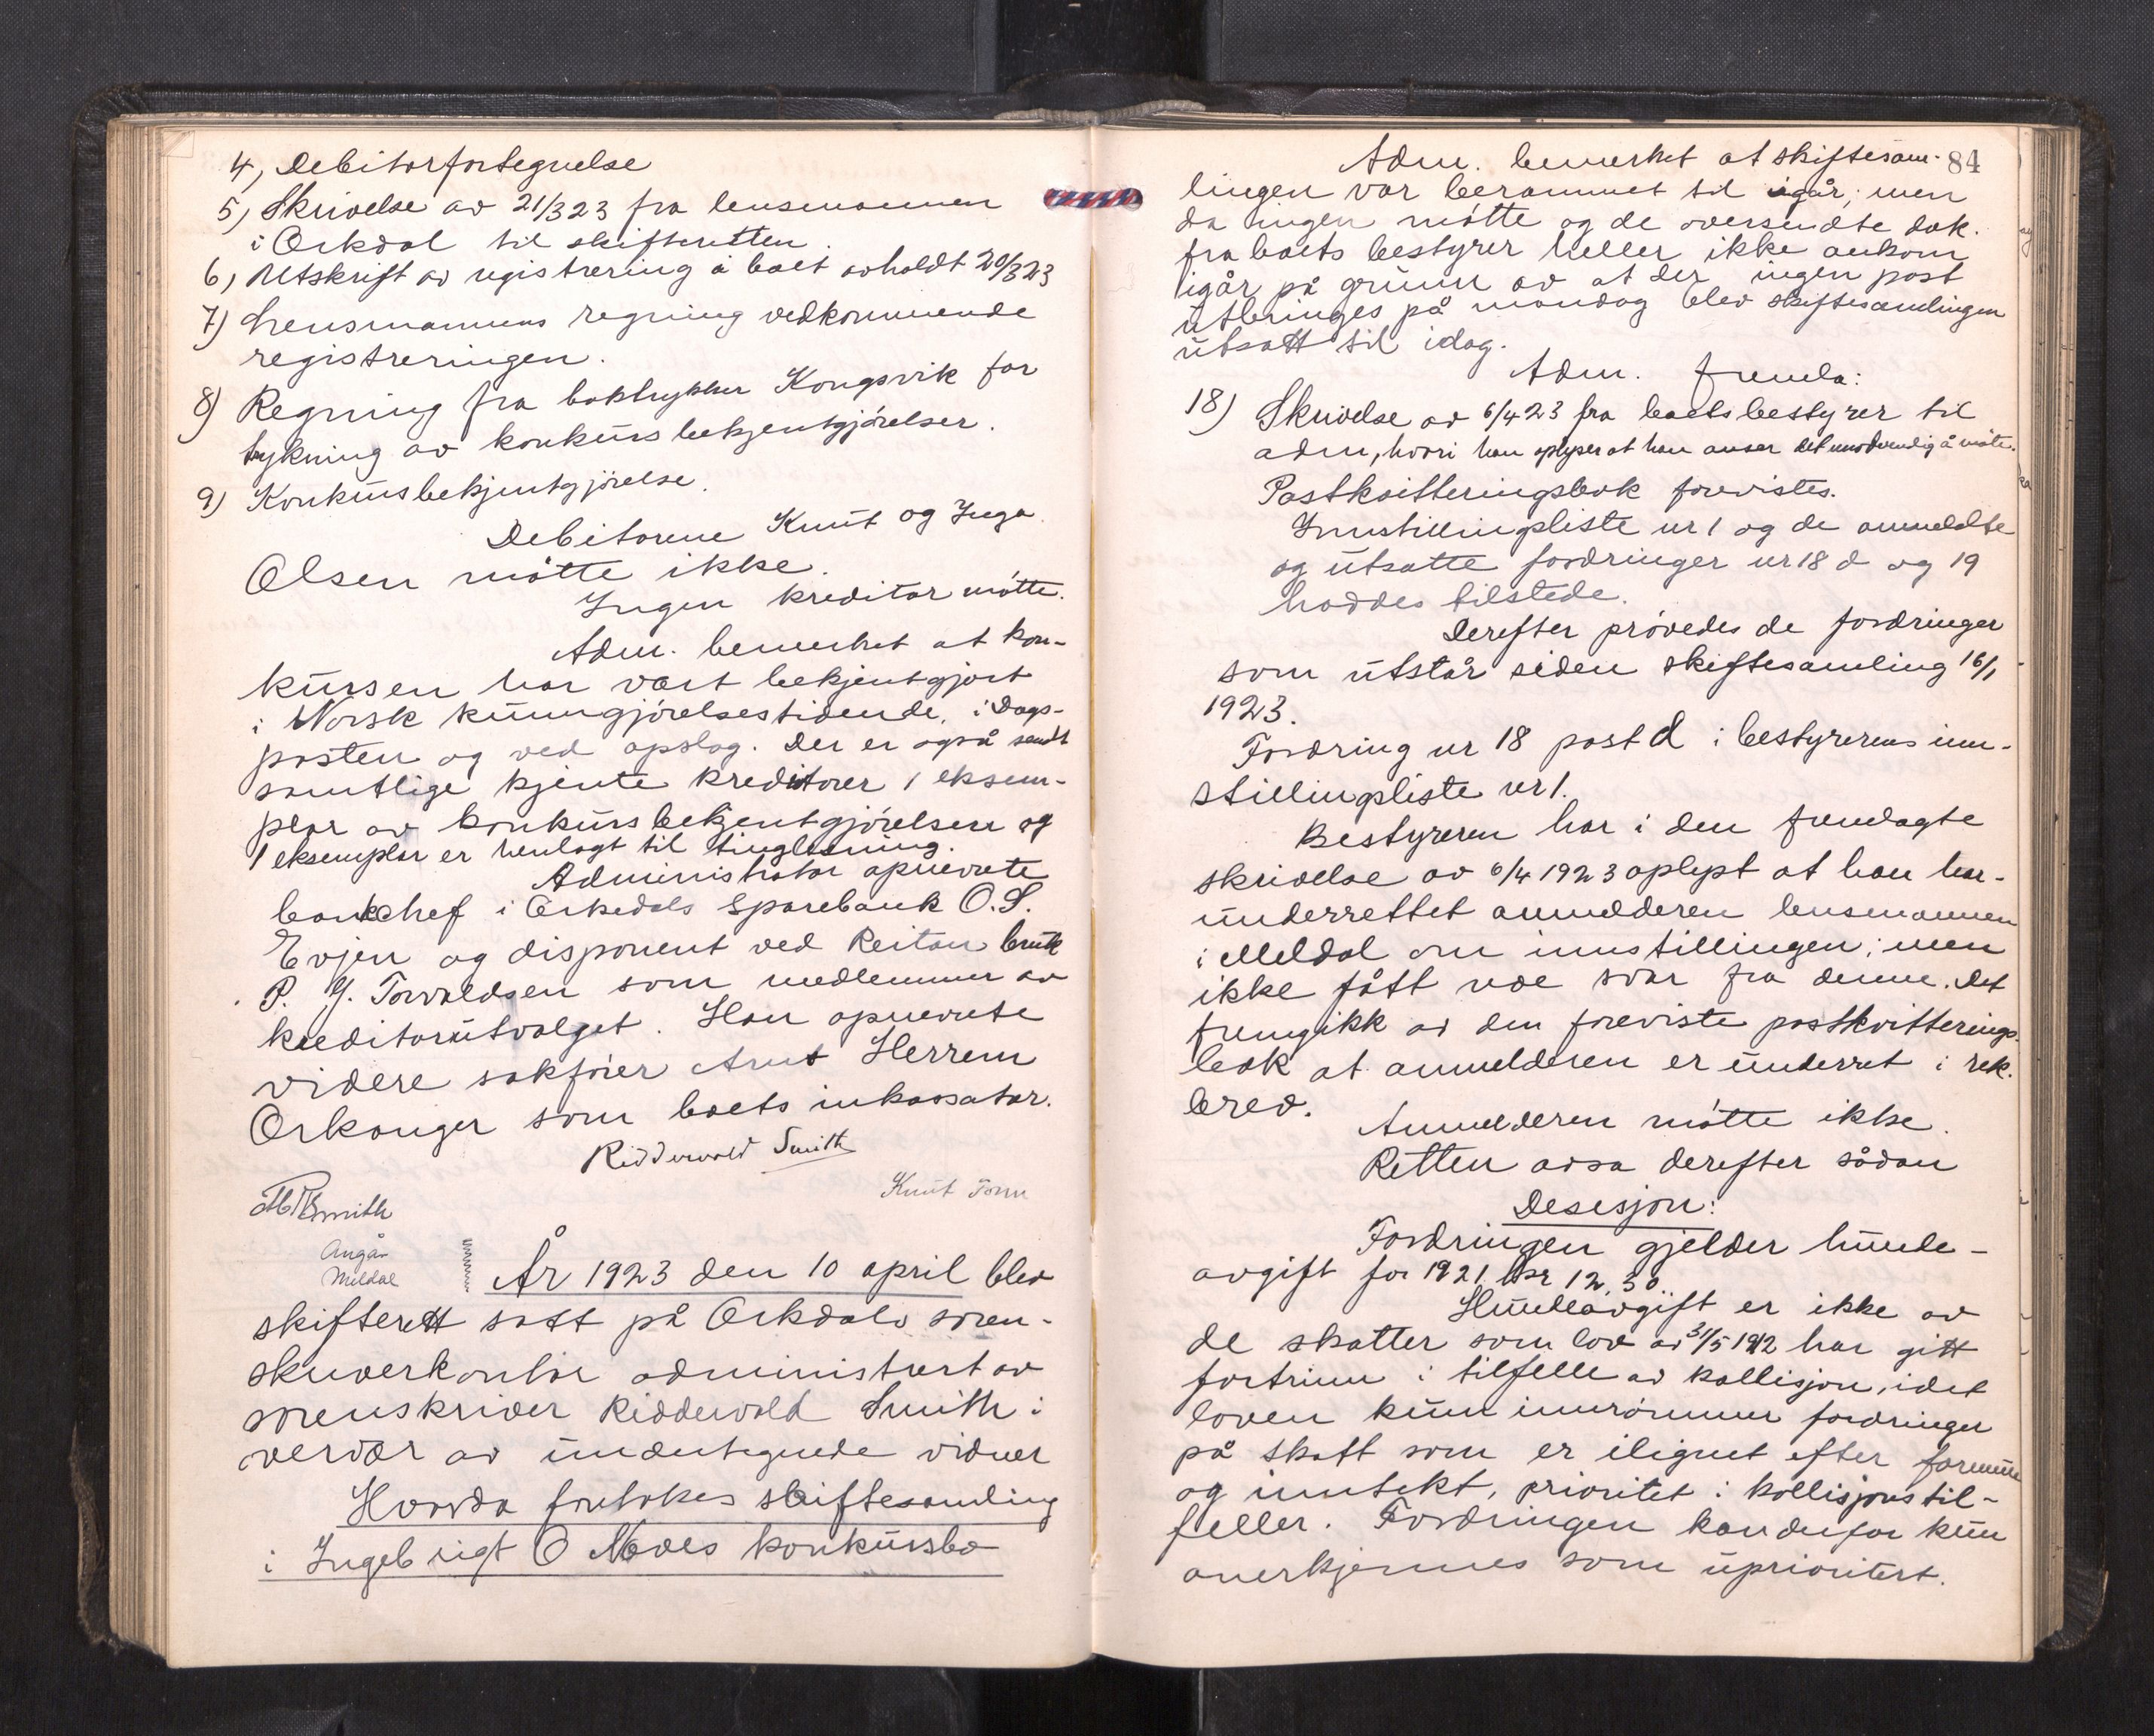 4, Debitorfortegnelse
5, Skrivelse av 21/3 23 fra lensmannen
i Orkdal til skifteretten.
6, Utskrift av registrering i boet avholdt 20/3 23
7) Lensmannens regning vedkommende
registreringen.
8) Regning fra boktrykker Kongsvik for
trykning av konkursbekjentgjørelser.
9) Konkursbekjentgjørelse.
Debitorene Knut og Inga
Olsen møtte ikke.
Ingen kreditor møtte.
Adm. bemerket at kon-
kursen har vært bekjentgjort
i Norsk kunngjørelsestidende, i Dags-
posten og ved opslag. Der er også sendt
samtlige kjente kreditorer 1 eksem-
plar av konkursbekjentgjørelsen og
1 eksemplar er henlagt til tinglesning.
Administrator opnevnte
bankchef i Orkedals Sparebank O. S.
Evjen og disponent ved Reitan bruk
P. J. Torvaldsen som medlemmer av
kreditorutvalget. Han opnevnte
videre sakfører Arnt Herrem
Orkanger som boets inkassator.
Ridderwold Smith
Smith
Knut
Angår
Meldal
År 1923 den 10 april blev
skifterett satt på Orkdals soren-
skriverkontor administrert av
sorenskriver Ridderwold Smith i
overvær av undertegnede vidner
Hvorda foretokes skiftesamling
i Ingebrigt O Moes konkursbo
84
Adm. bemerket at skiftesam-
lingen var berammet til igår; men
da ingen møtte og de oversendte dok.
fra boets bestyrer heller ikke ankom
igår på grunn av at der ingen post
utbringes på mandag blev skiftesamlingen
utsatt til idag.
Adm. fremla:
18) Skrivelse av 6/4 23 fra boets bestyrer til
adm, hvori han oplyser at han anser det unødvendig å møte.
Postkvitteringsbok forevistes.
Innstillingsliste nr 1 og de anmeldte
og utsatte fordringer nr 18 d og 19
haddes tilstede.
Derefter prøvedes de fordringer
som utstår siden skiftesamling 16/1
1923.
Fordring nr 18 post d i bestyrerens inn-
stillingsliste nr 1.
Bestyreren har i den fremlagte
skrivelse av 6/4 1923 oplyst at han har
underrettet anmelderen lensmannen
i Meldal om innstillingen; men
ikke fått noe svar fra denne. Det
fremgikk av den foreviste postkvitterings-
bok at anmelderen er underret i rek.
brev.
Anmelderen møtte ikke.
Retten avsa derefter sådan
Desesjon:
Fordringen gjelder hunde-
avgift for 1921 kr 12,30.
Hundeavgift er ikke av
de skatter som lov av 31/5 1912 har gitt
fortrinn i tilfelle av kollisjon, idet
loven kun innrømmer fordringer
på skatt som er ilignet efter formue
og inntekt, prioritet i kollisjonstil-
feller. Fordringen kan derfor kun
anerkjennes som uprioritert.